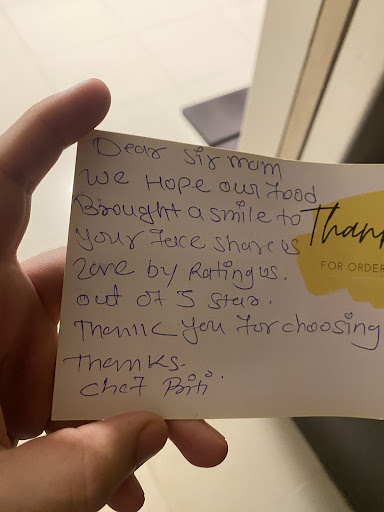 Dear sir mam
we Hope our food
Brought a smile to
your face share us
love by Rating us.
out of 5 star.
Thank you for choosing
Thanks.
Chef Priti
Than
FOR ORDER